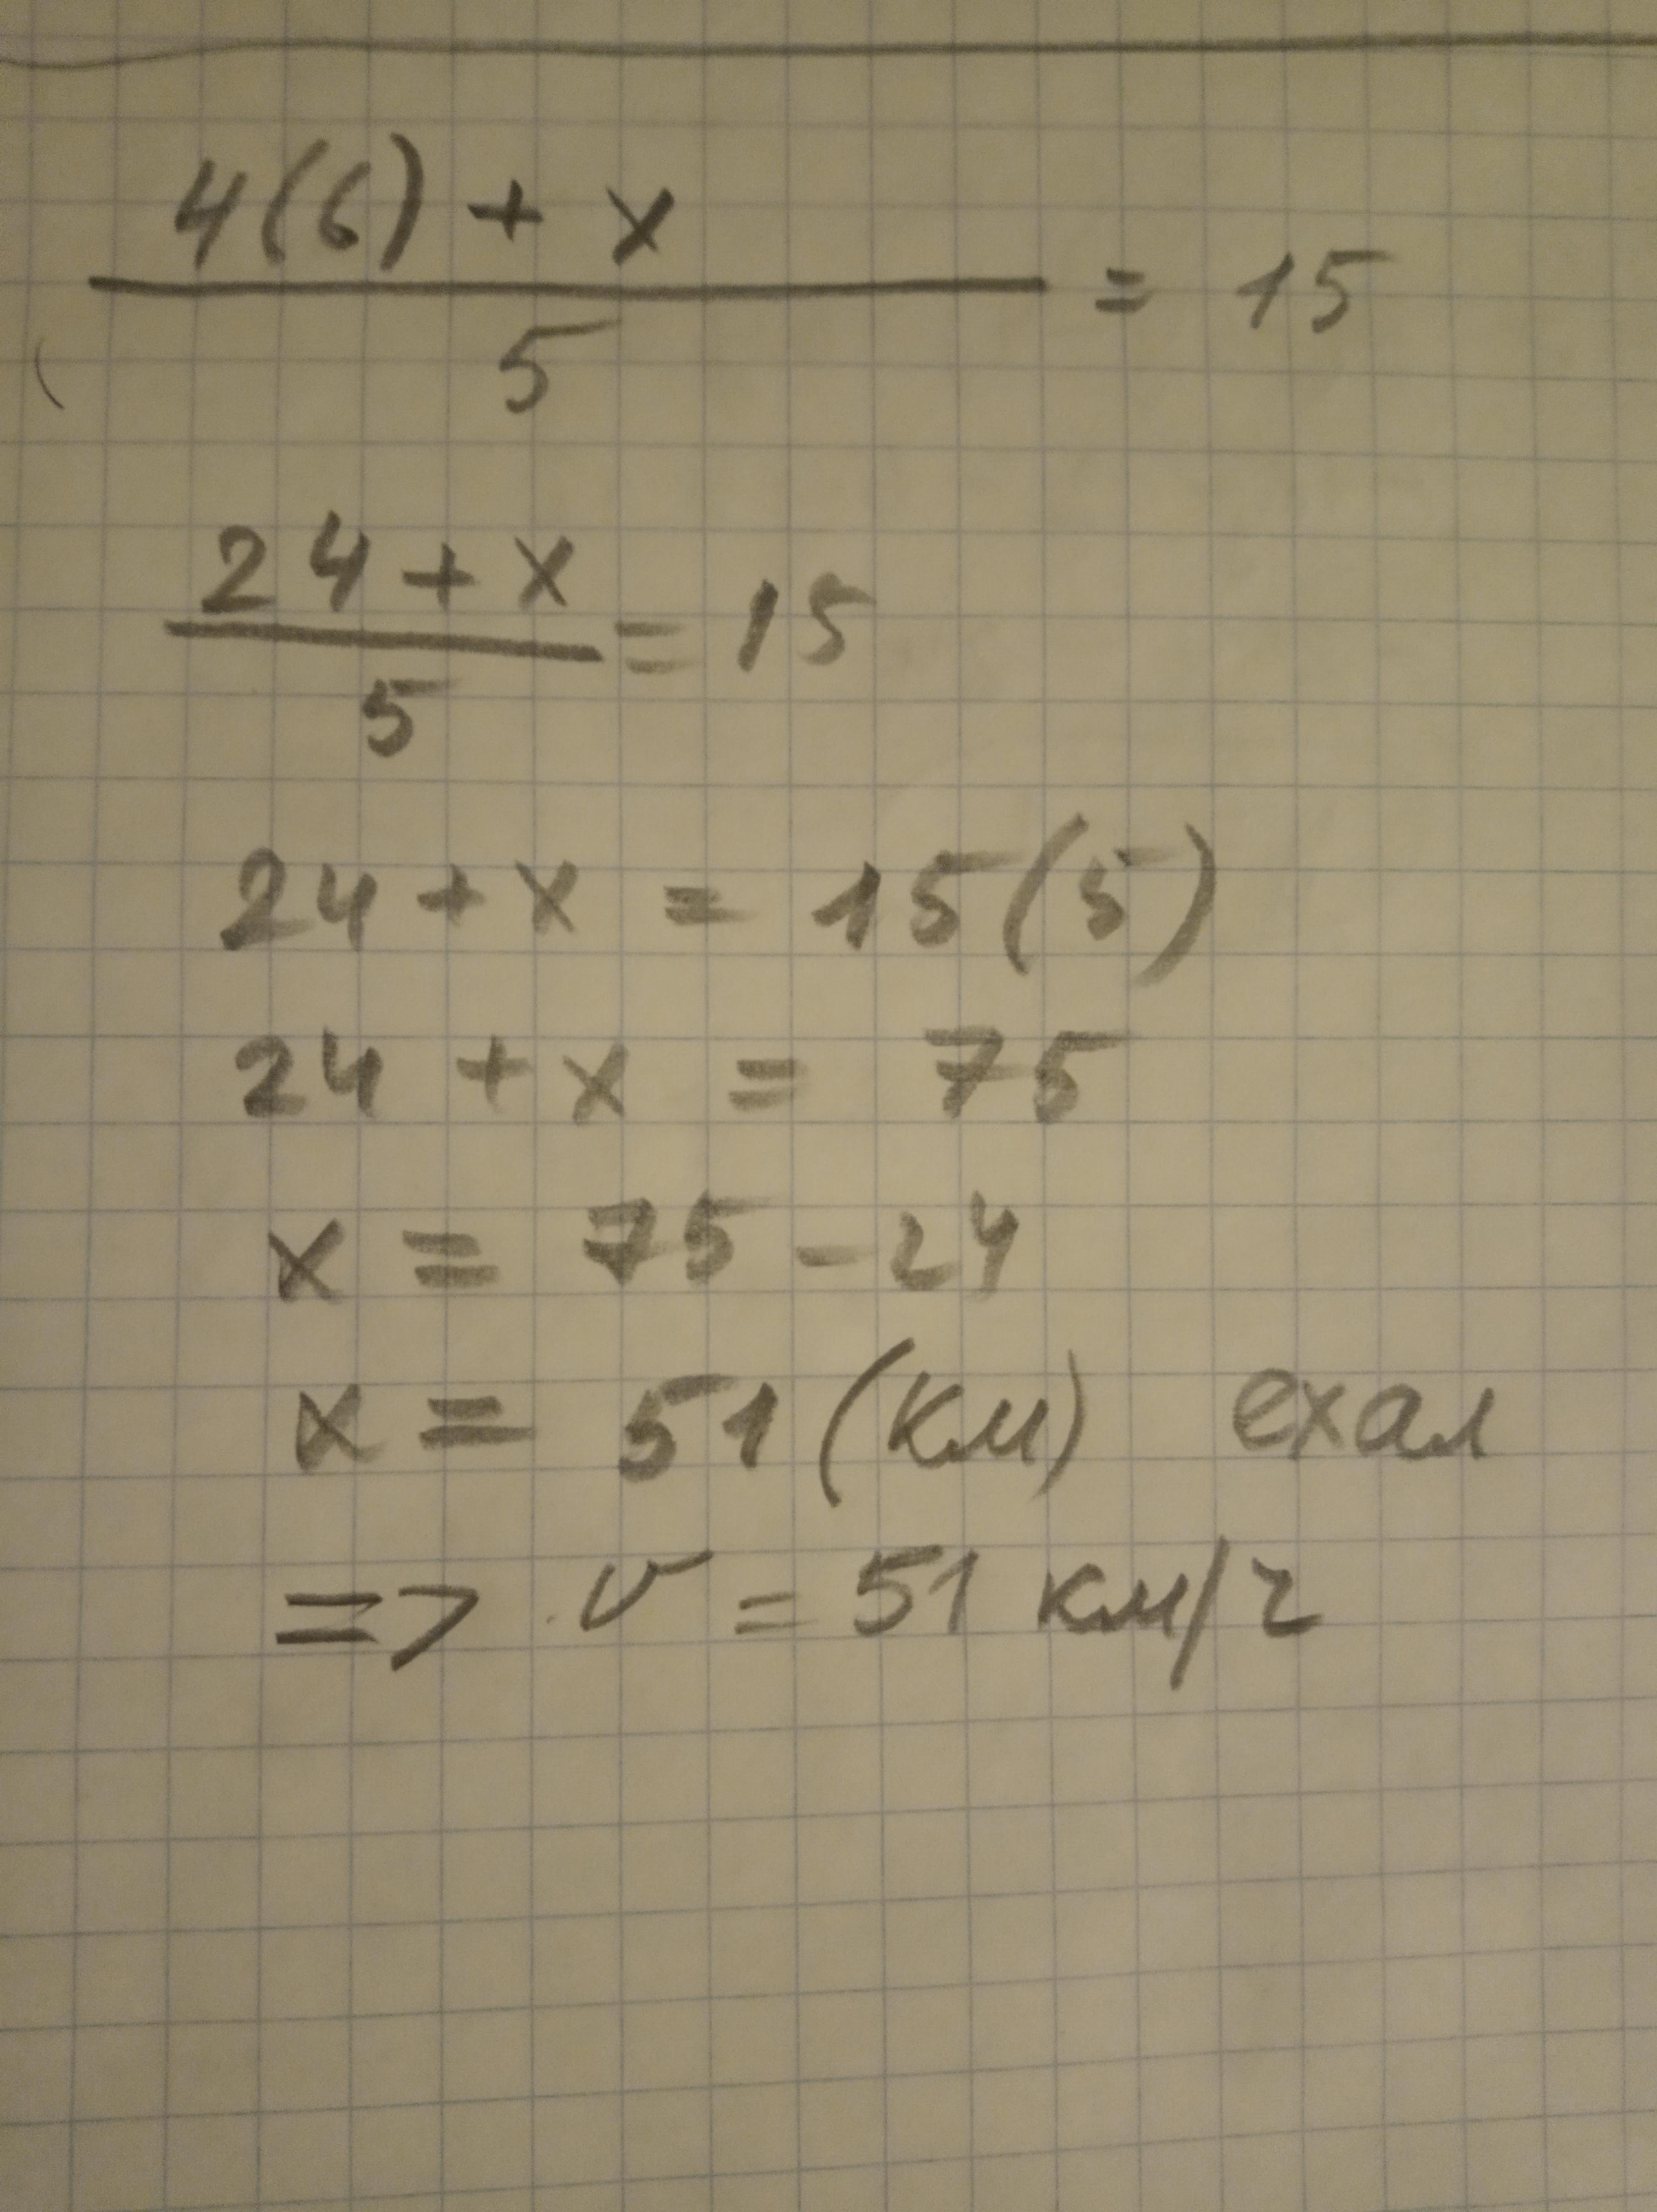 4(6) + x
———————— = 15
5
24 + x
—————— = 15
5
24 + x = 15(5)
24 + x = 75
x = 75 - 24
x = 51 (км) ехал
=> v = 51 км/ч